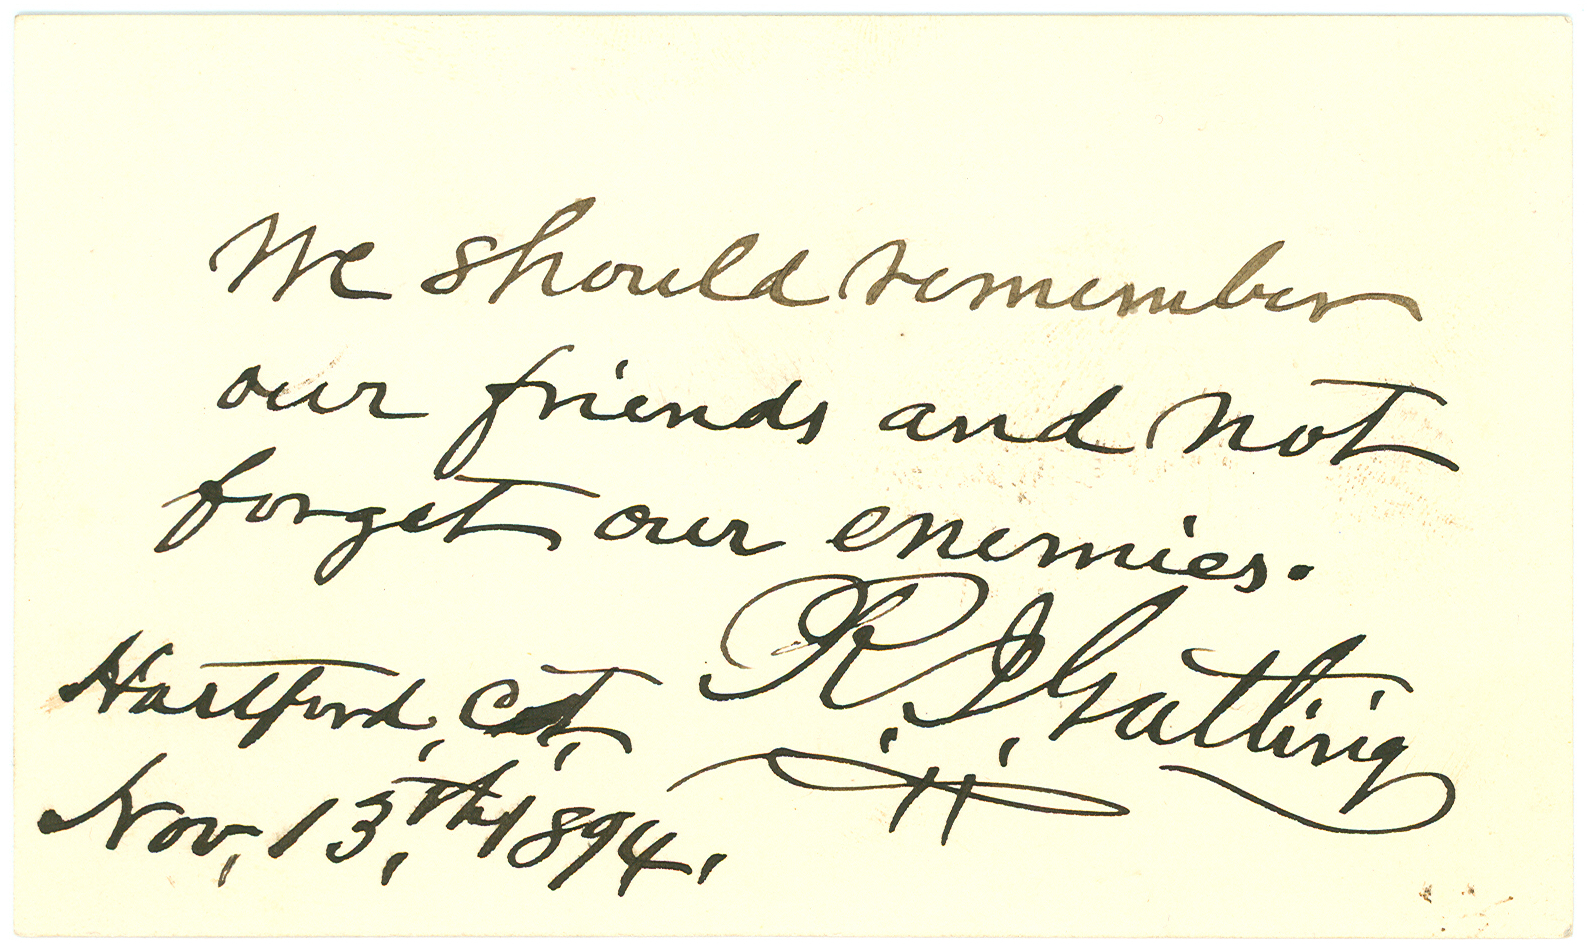 We should remember
our friends and not
forget our enemies.
R. J. Gatling
Hartford, Ct,
Nov, 13,th 1894.